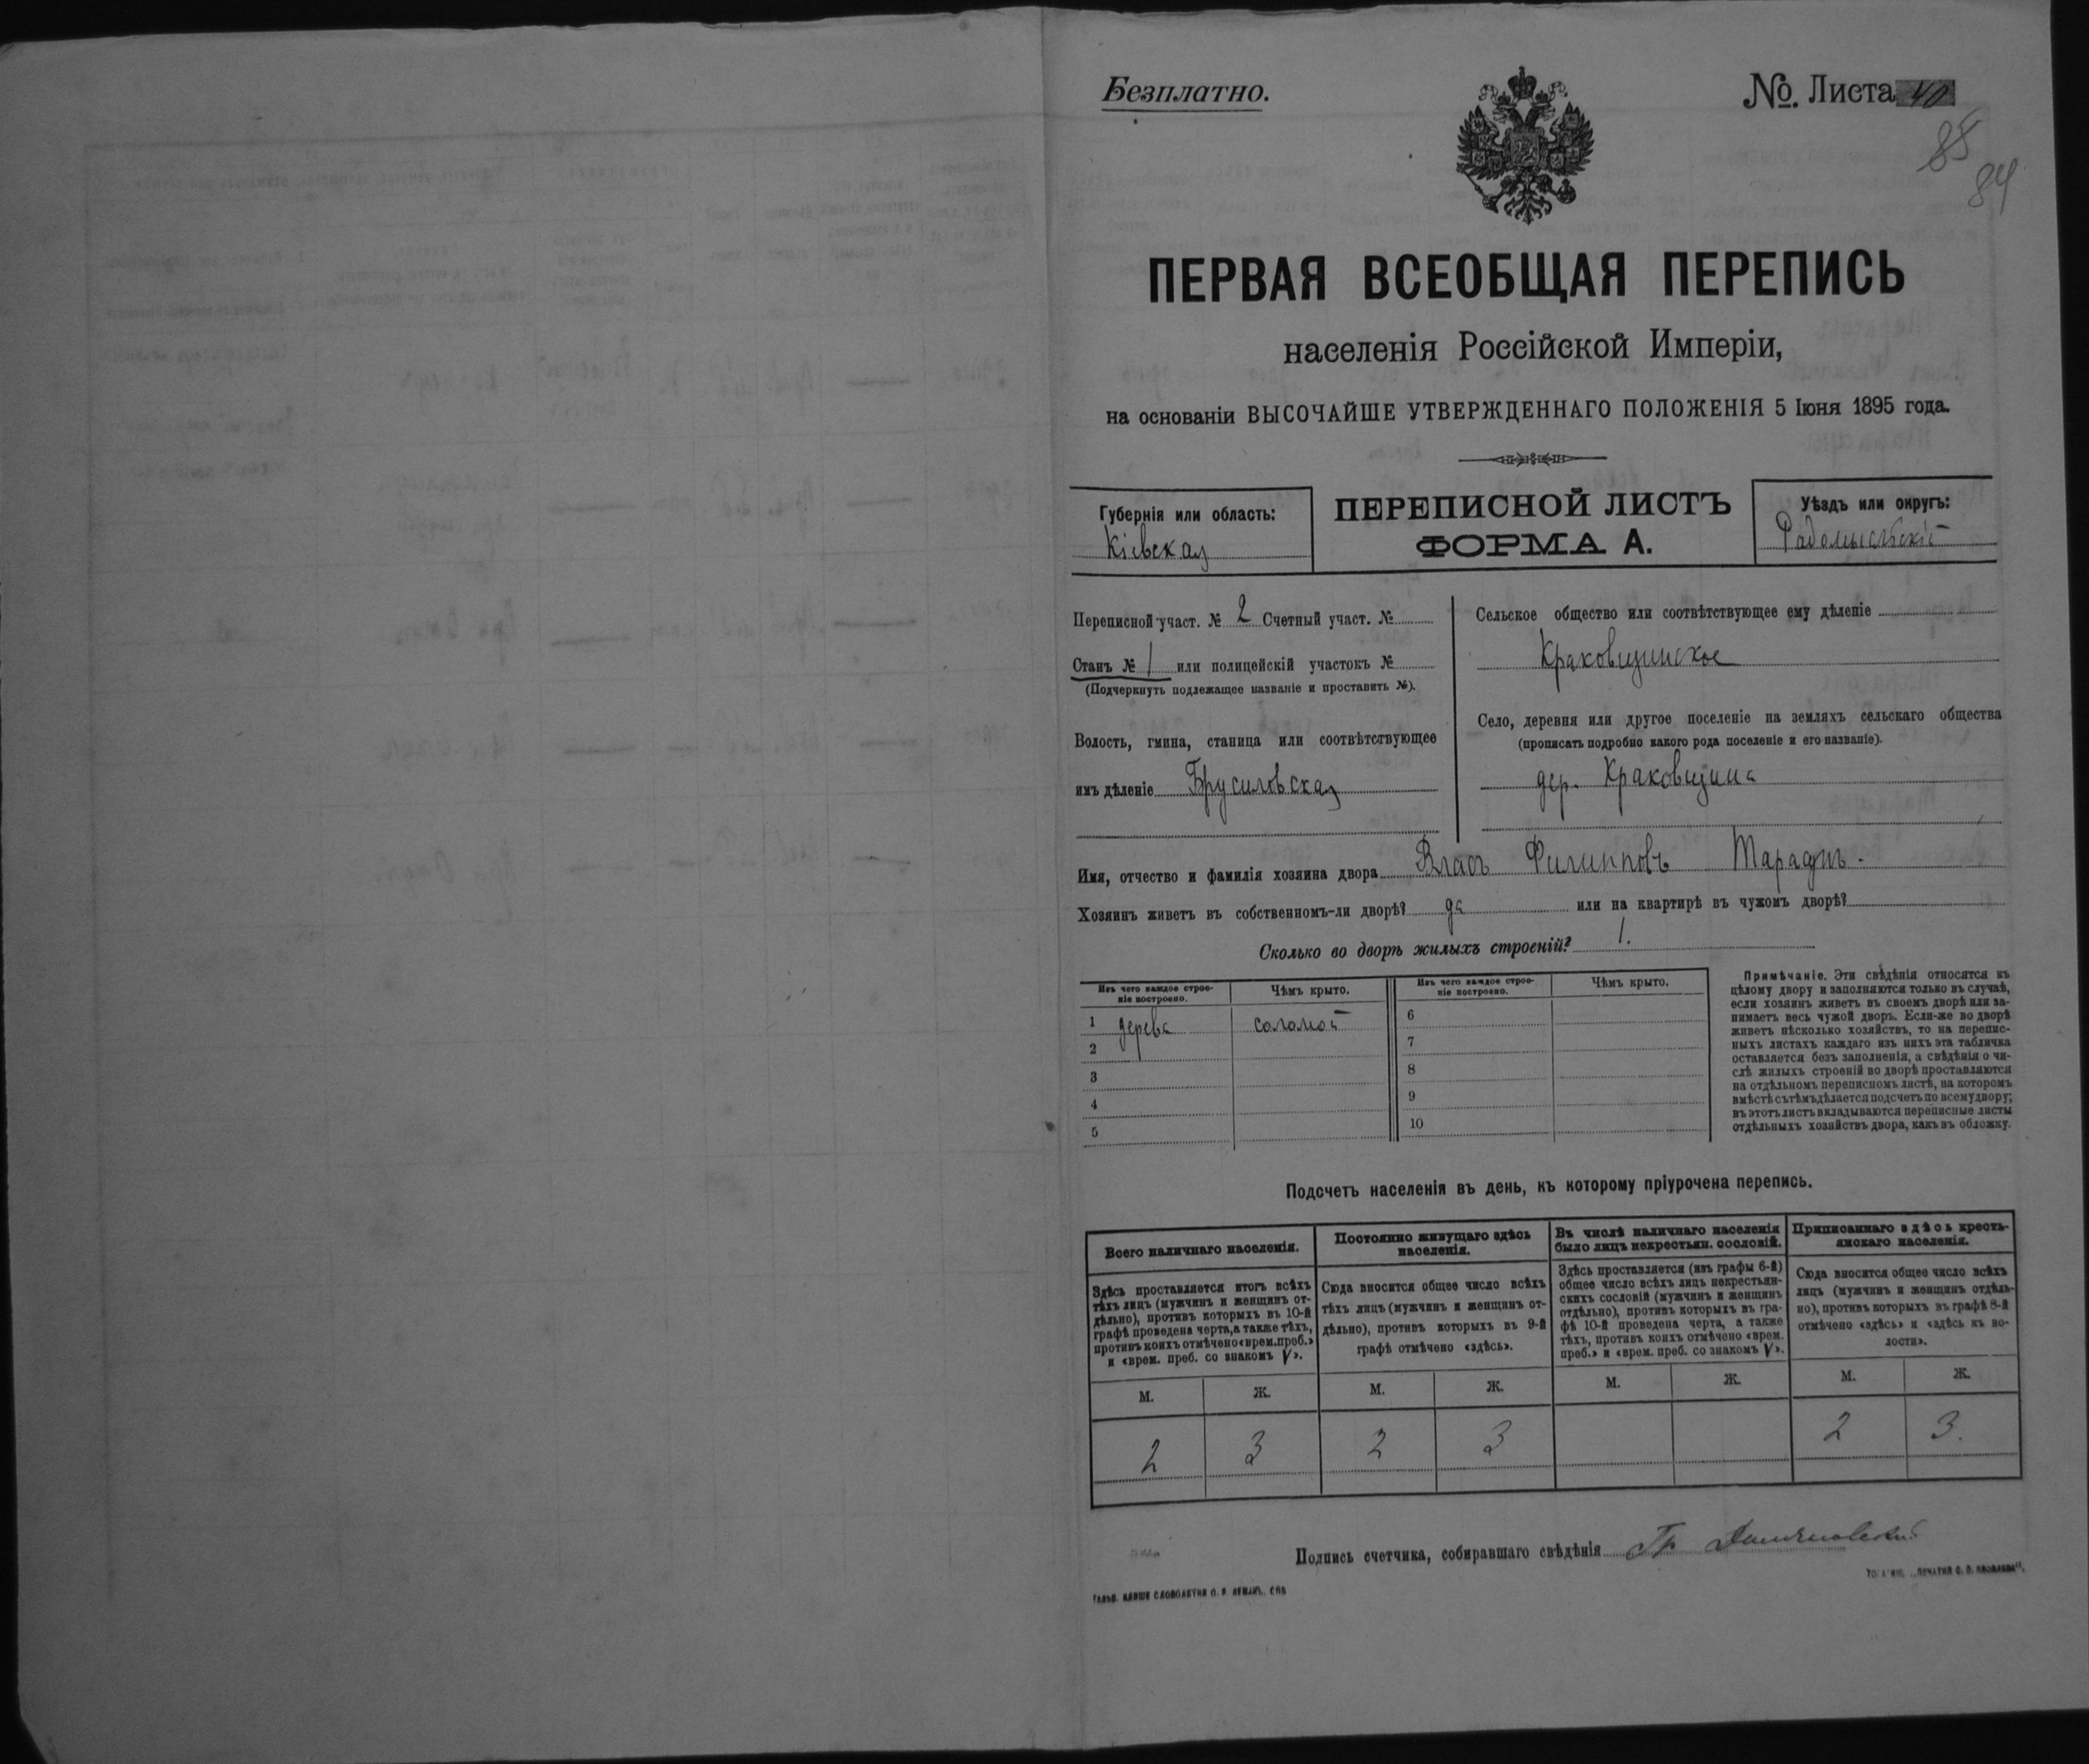 Безплатно.
№. Листа 40
85
84
ПЕРВАЯ ВСЕОБЩАЯ ПЕРЕПИСЬ
населенія Россійской Имперіи,
на основаніи ВЫСОЧАЙШЕ УТВЕРЖДЕННАГО ПОЛОЖЕНІЯ 5 Іюня 1895 года.
Губернія или область:
Кіевская
ПЕРЕПИСНОЙ ЛИСТЪ
ФОРМА А.
Уѣздъ или округъ:
Радомысльскій
Переписной участ. № 2 Счетный участ. №
Станъ № 1 или полицейскій участокъ №
(Подчеркнуть подлежащее названіе и проставить №).
Волость, гмина, станица или соотвѣтствующее
имъ дѣленіе Брусиловская
Сельское общество или соотвѣтствующее ему дѣленіе
Краковщинское
Село, деревня или другое поселеніе на земляхъ сельскаго общества
(прописать подробно какого рода поселеніе и его названіе).
дер. Краковщина
Имя, отчество и фамилія хозяина двора Власъ Филипповъ
Хозяинъ живетъ въ собственномъ-ли дворѣ? да или на квартирѣ въ чужомъ дворѣ?
Сколько во дворѣ жилыхъ строеній? 1.
Изъ чего каждое строе-
ніе построено.
Чѣмъ крыто.
Изъ чего каждое строе-
ніе построено.
Чѣмъ крыто.
1 дерева соломой
2
3
4
5
6
7
8
9
10
Примѣчаніе. Эти свѣдѣнія относятся къ
цѣлому двору и заполняются только въ случаѣ,
если хозяинъ живетъ въ своемъ дворѣ или за-
нимаетъ весь чужой дворъ. Если-же во дворѣ
живетъ нѣсколько хозяйствъ, то на перепис-
ныхъ листахъ каждаго изъ нихъ эта табличка
оставляется безъ заполненія, а свѣдѣнія о чи-
слѣ жилыхъ строеній во дворѣ проставляются
на отдѣльномъ переписномъ листѣ, на которомъ
вмѣстѣ съ тѣмъ дѣлается подсчетъ по всему двору;
въ этотъ листъ вкладываются переписные листы
отдѣльныхъ хозяйствъ двора, какъ въ обложку.
Подсчетъ населенія въ день, къ которому пріурочена перепись.
Всего наличнаго населенія.
Здѣсь проставляется итогъ всѣхъ
тѣхъ лицъ (мужчинъ и женщинъ от-
дѣльно), противъ которыхъ въ 10-й
графѣ проведена черта, а также тѣхъ,
противъ коихъ отмѣчено «врем. преб.»
и «врем. преб. со знакомъ V».
Постоянно живущаго здѣсь
населенія.
Сюда вносится общее число всѣхъ
тѣхъ лицъ (мужчинъ и женщинъ от-
дѣльно), противъ которыхъ въ 9-й
графѣ отмѣчено «здѣсь».
Въ числѣ наличнаго населенія
было лицъ некрестьян. сословій.
Здѣсь проставляется (изъ графы 6-й)
общее число всѣхъ лицъ некрестьян-
скихъ сословій (мужчинъ и женщинъ
отдѣльно), противъ которыхъ въ гра-
фѣ 10-й проведена черта, а также
тѣхъ, противъ коихъ отмѣчено «врем.
преб.» и «врем. преб. со знакомъ V».
Приписаннаго здѣсь кресть-
янскаго населенія.
Сюда вносится общее число всѣхъ
лицъ (мужчинъ и женщинъ отдѣль-
но), противъ которыхъ въ графѣ 8-й
отмѣчено «здѣсь» и «здѣсь къ во-
лости».
М. Ж. М. Ж. М. Ж. М. Ж.
2 3 2 3 2 3.
Подпись счетчика, собиравшаго свѣдѣнія Гр